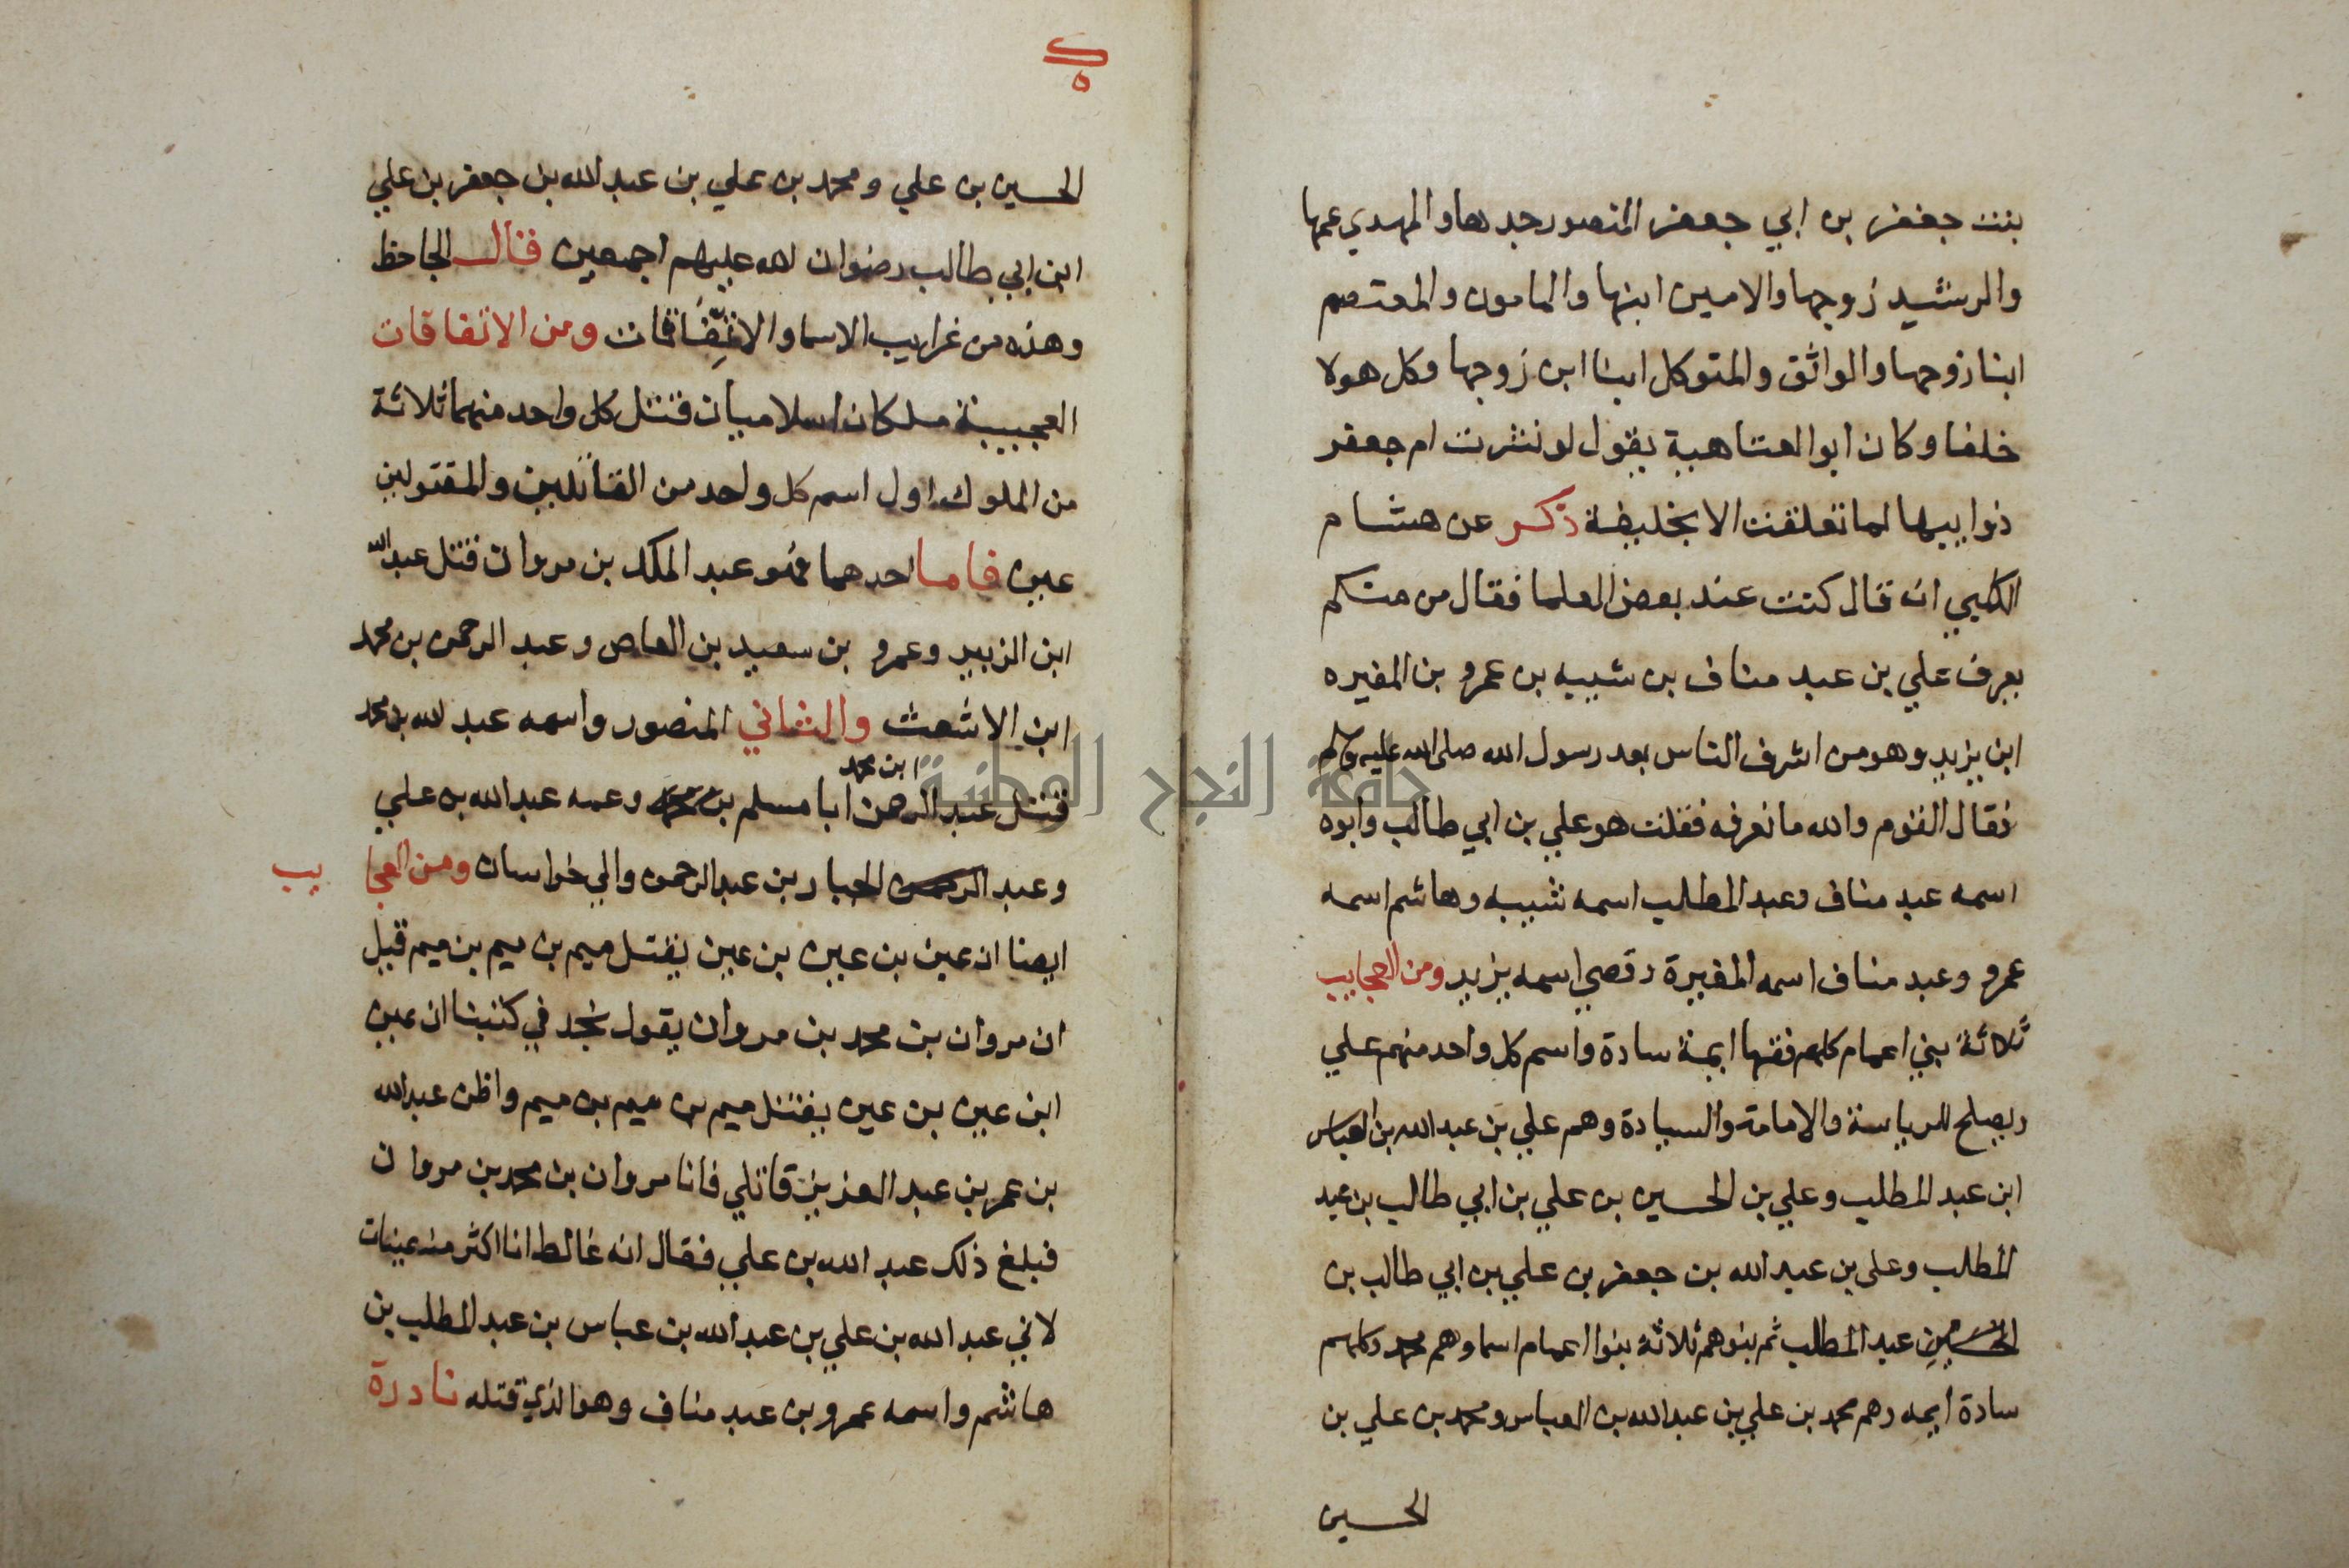 بنت جعفر بن ابي جعفر المنصور جدها والمهدي عمها
والرشيد زوجها والامين ابنها والمامون والمعتصم
ابنا زوجها والواثق والمتوكل ابنا ابن زوجها وكل هولا
خلفا وكان ابوا العتاهية يقول لو نشرت ام جعفر
ذوايبها لما تعلقت الا بخليفة ذكر عن هشام
الكلبي انه قال كنت عند بعض العلما فقال من منكم
يعرف علي بن عبد مناف بن شيبه بن عمرو بن المغيره
ابن يزيد وهو من اشرف الناس بعد رسول الله صلى الله عليه وسلم
فقال القوم والله ما نعرفه فقلت هو علي بن ابي طالب وابوه
اسمه عبد مناف وعبد المطلب اسمه شيبه وهاشم اسمه
عمرو وعبد مناف اسمه المغيرة وقصي اسمه يزيد ومن العجايب
ثلاثة بني اعمام كلهم فقها ايمة سادة واسم كل واحد منهم علي
ويصلح للرياسة والامامة والسيادة وهم علي بن عبد الله بن العباس
ابن عبد المطلب وعلي بن الحسين بن علي بن ابي طالب بن عبد
المطلب وعلي بن عبد الله بن جعفر بن علي بن ابي طالب بن
عبد المطلب ثم بنوهم ثلاثة بنوا اعمام اسماوهم محمد وكلهم
سادة ايمه وهم محمد بن علي بن عبد الله بن العباس ومحمد بن علي بن
الحسين
الحسين بن علي ومحمد بن علي بن عبد الله بن جعفر بن علي
ابن ابي طالب رضوان الله عليهم اجمعين قال الجاحظ
وهذه من غرايب الاسما والاتفاقات ومن الاتفاقات
العجيبة ملكان اسلاميان قتل كل واحد منهما ثلاثة
من الملوك اول اسم كل واحد من القاتلين والمقتولين
عين فاما احدهما فهو عبد الملك بن مروان قتل عبد الله
ابن الزبير وعمرو بن سعيد بن العاص وعبد الرحمن بن محمد
ابن الاشعث والثاني المنصور واسمه عبد الله بن محمد
ابن محمد
قتل عبد الرحمن ابا مسلم بن محمد وعمه عبد الله بن علي
وعبد الرحمن الجبار بن عبد الرحمن والي خراسان ومن العجايب
ايضا ان عين بن عين بن عين يقتل ميم بن ميم بن ميم قيل
ان مروان بن محمد بن مروان يقول نجد في كتبنا ان عين
ابن عين بن عين يقتل ميم بن ميم بن ميم واظن عبد الله
بن عمر بن عبد العزيز قاتلي فانا مروان بن محمد بن مروان
فبلغ ذلك عبد الله بن علي فقال انه غالط انا اكثر منه عينات
لاني عبد الله بن علي بن عبد الله بن عباس بن عبد المطلب بن
هاشم واسمه عمرو بن عبد مناف وهو الذي قتله نادرة
جامعة النجاح الوطنية